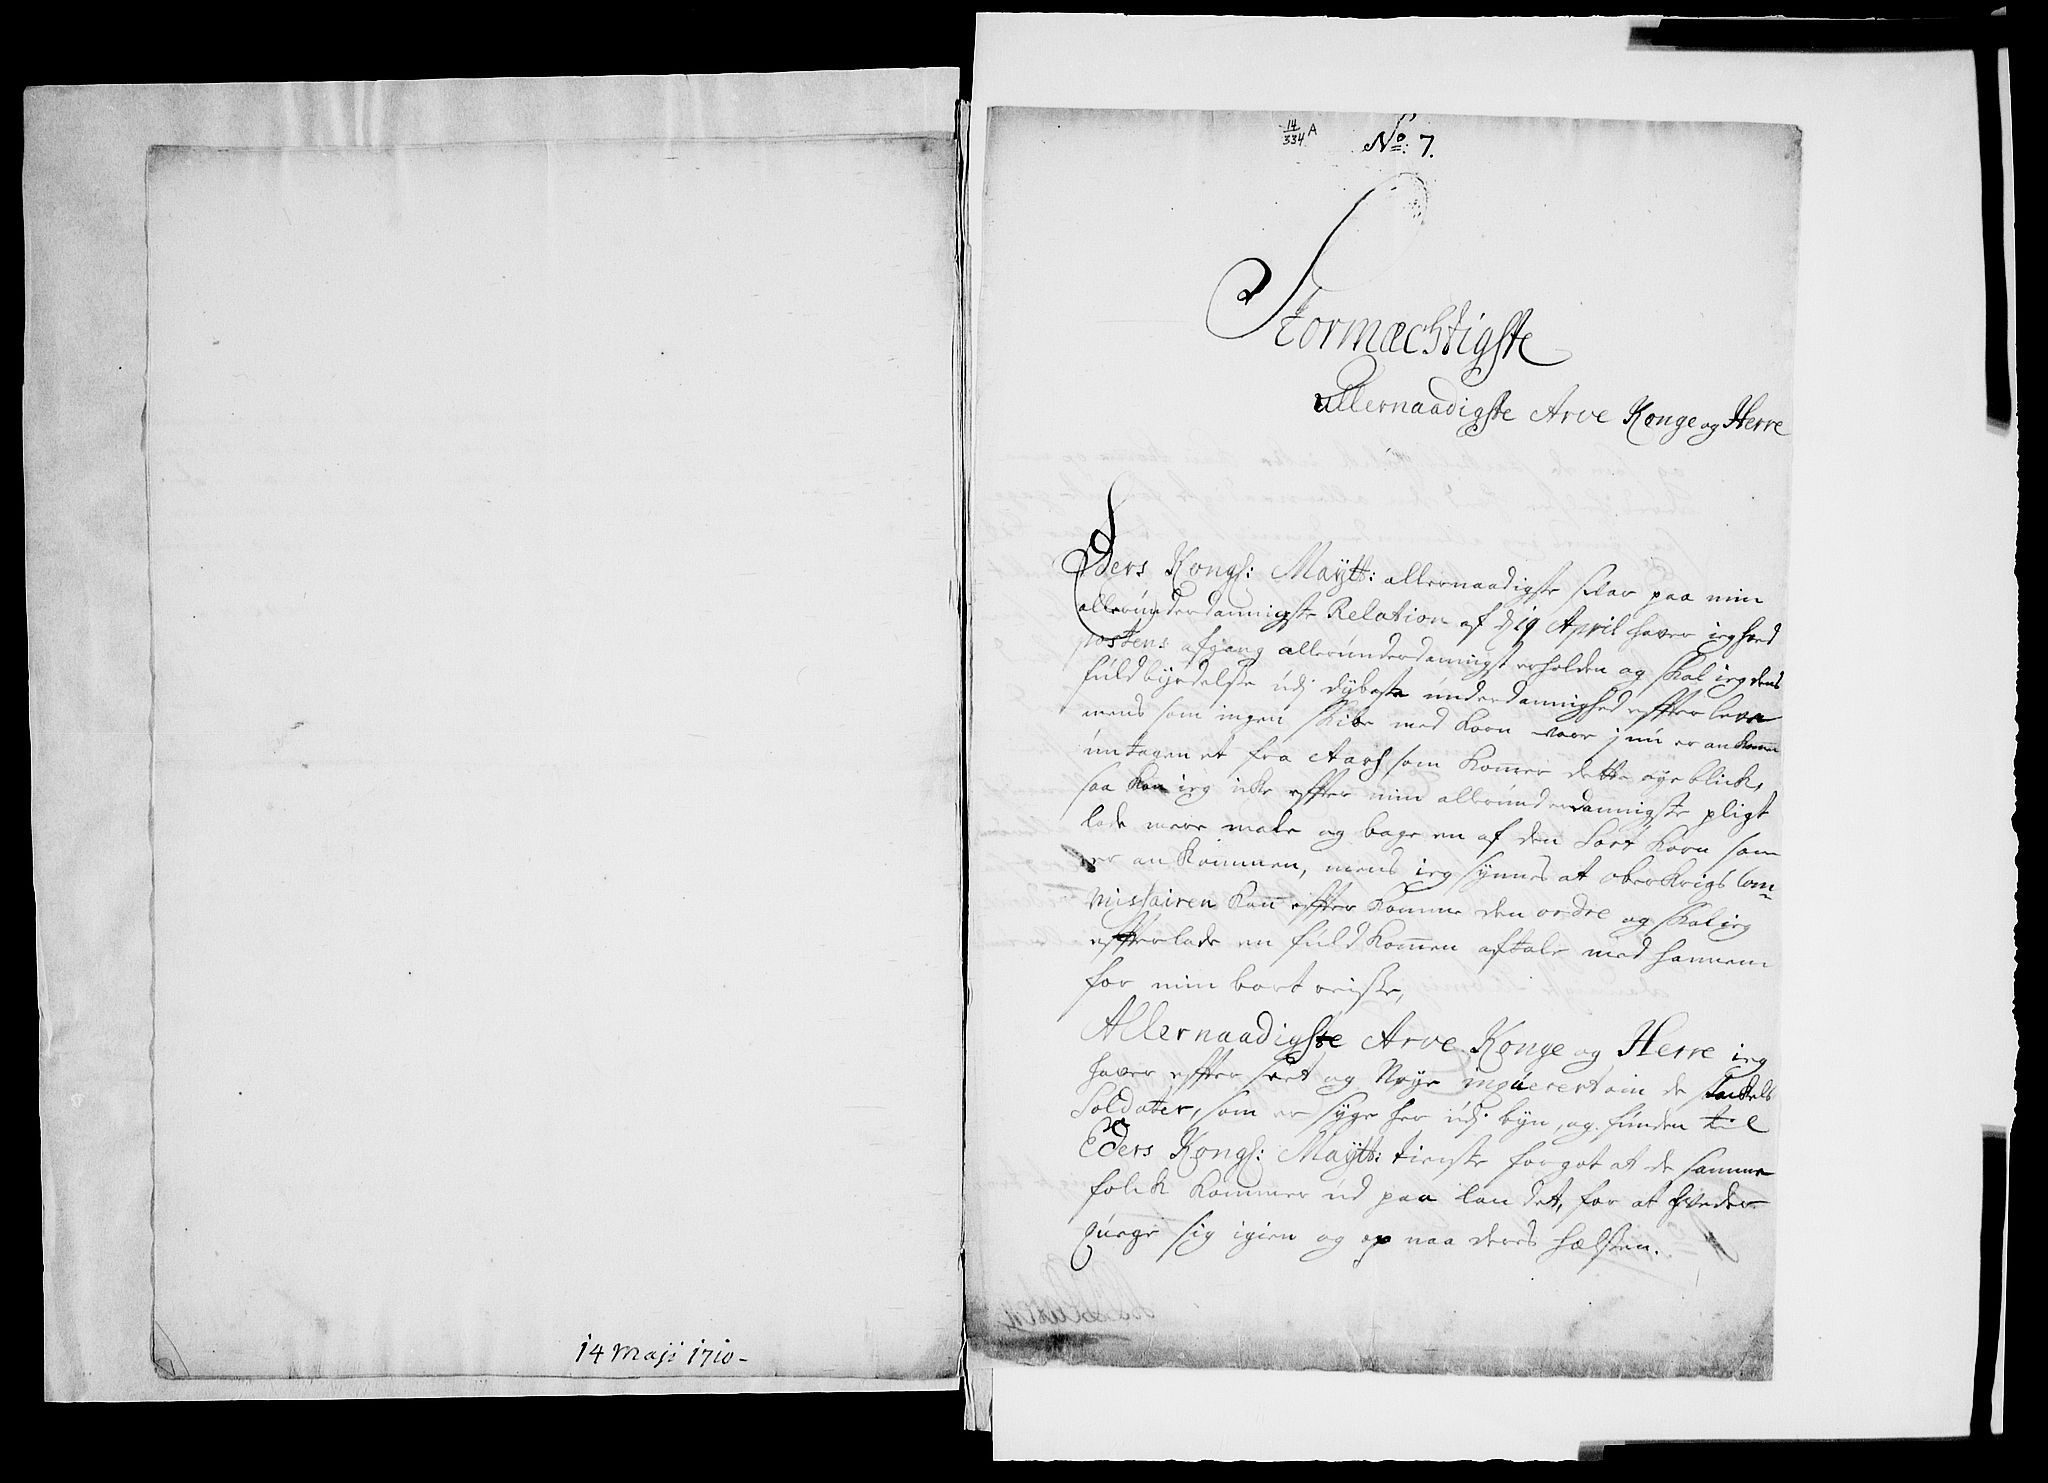 14 Maji 1710-
14/334 A
No: 7.
Stormæchtigste
allernaadigste Arve Konge og Herre
Eders Kongl: Maÿtt: allernaadigste svar paa min
allerúnderdannigste Relation af d 19 April haver ieg hved
postens afgang allerúnderdannigst erholden og skal ieg dens
fúldbÿrdelsse údj dÿbeste únderdannighed effter leve
mens som ingen skibe med korn voor j nú er ankomn
úntagen et fra Aars som komer dette øyeblick,
saa kan ieg icke effter min allerúnderdannigste pligt
lade mere male og bage en af den Sort korn som
er ankommen, mens ieg sÿnnes at oberkrigs Com-
missairen kan effter komme den ordre og skal ieg
effterlade en fúldkomen aftale med hannem
for min bort reisse,
Allernaadigste Arve Konge og Herre ieg
haver effter seet og Nøye inqúerert om de
Soldater, som er sÿge her údj bÿn, og fúnden til
Eders Kongl: Maÿtt: tieniste forgot at de samme
folck kommer úd paa landet, for at
qúege sig igien og op naa deres hælssen.